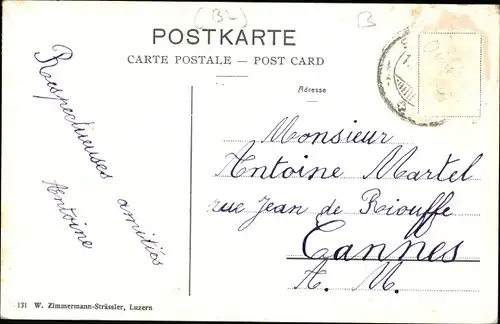 (BL)
B
POSTKARTE
CARTE POSTALE – POST CARD
Adresse
Respectueuses amitiés
Antoine
Monsieur
Antoine Martel
rue Jean de Riouffe
Cannes
A. M.
131 W. Zimmermann-Strässler, Luzern